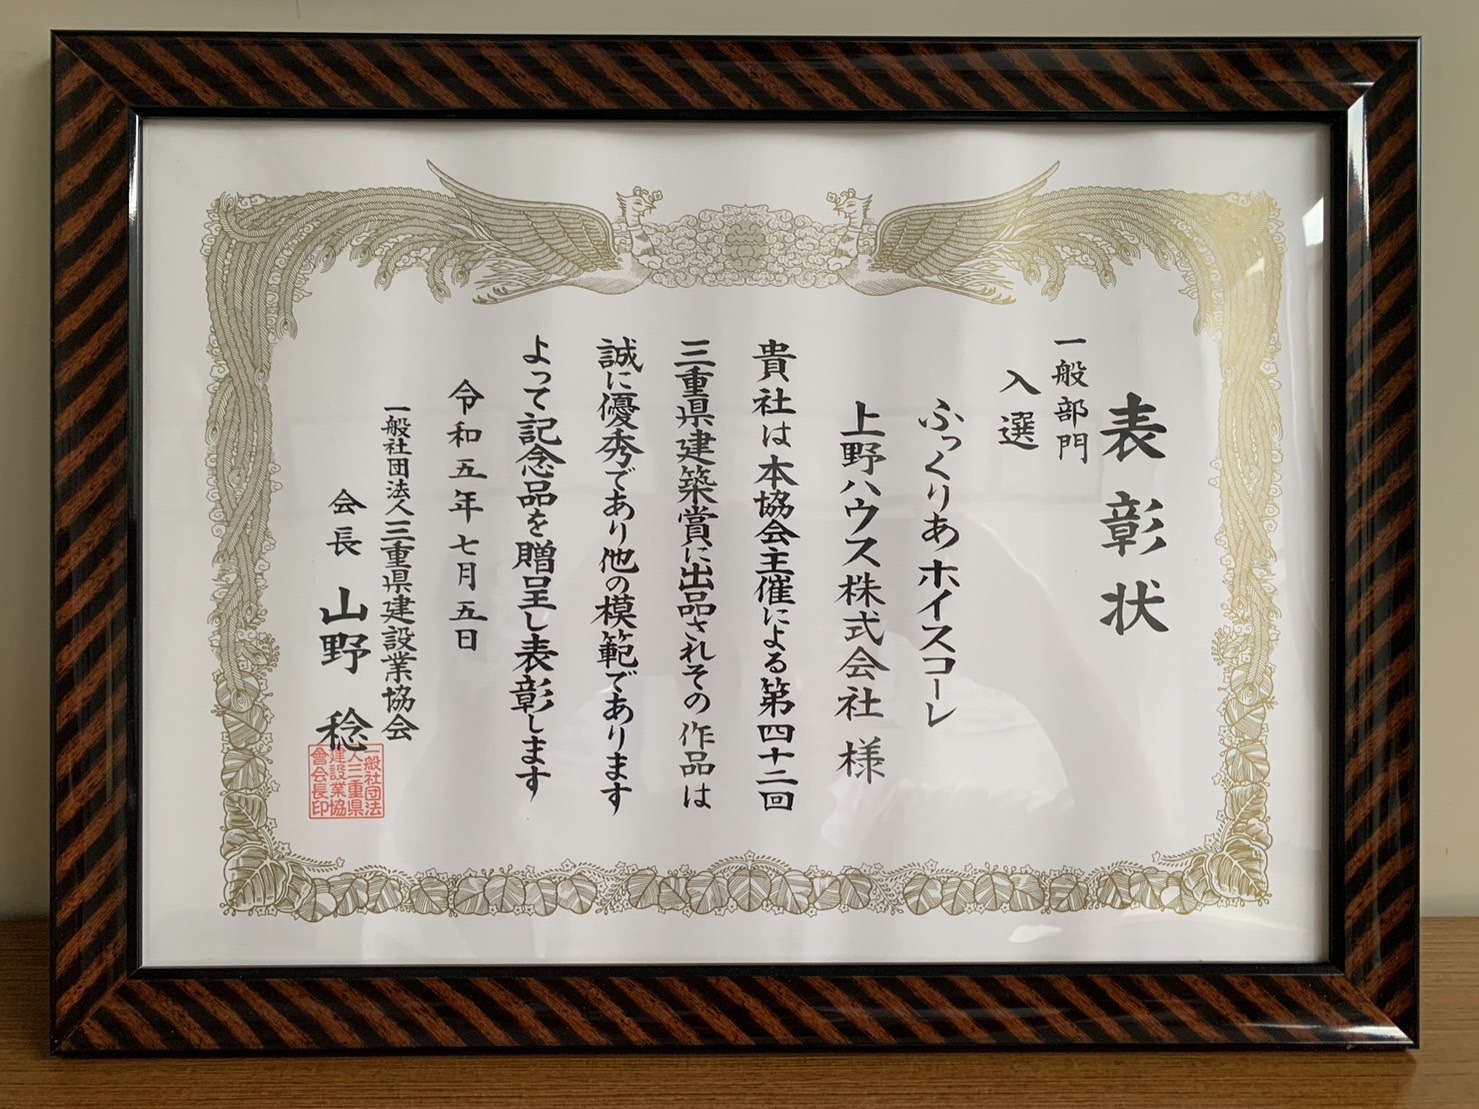 表彰状
一般部門
入選
ふっくりあホイスコーレ
上野ハウス株式会社 様
貴社は本協会主催による第四十二回
三重県建築賞に出品されその作品は
誠に優秀であり他の模範であります
よって記念品を贈呈し表彰します
令和五年七月五日
一般社団法人三重県建設業協会
会長 山野 稔
一般社団法
人三重県
建設業協
會会長印